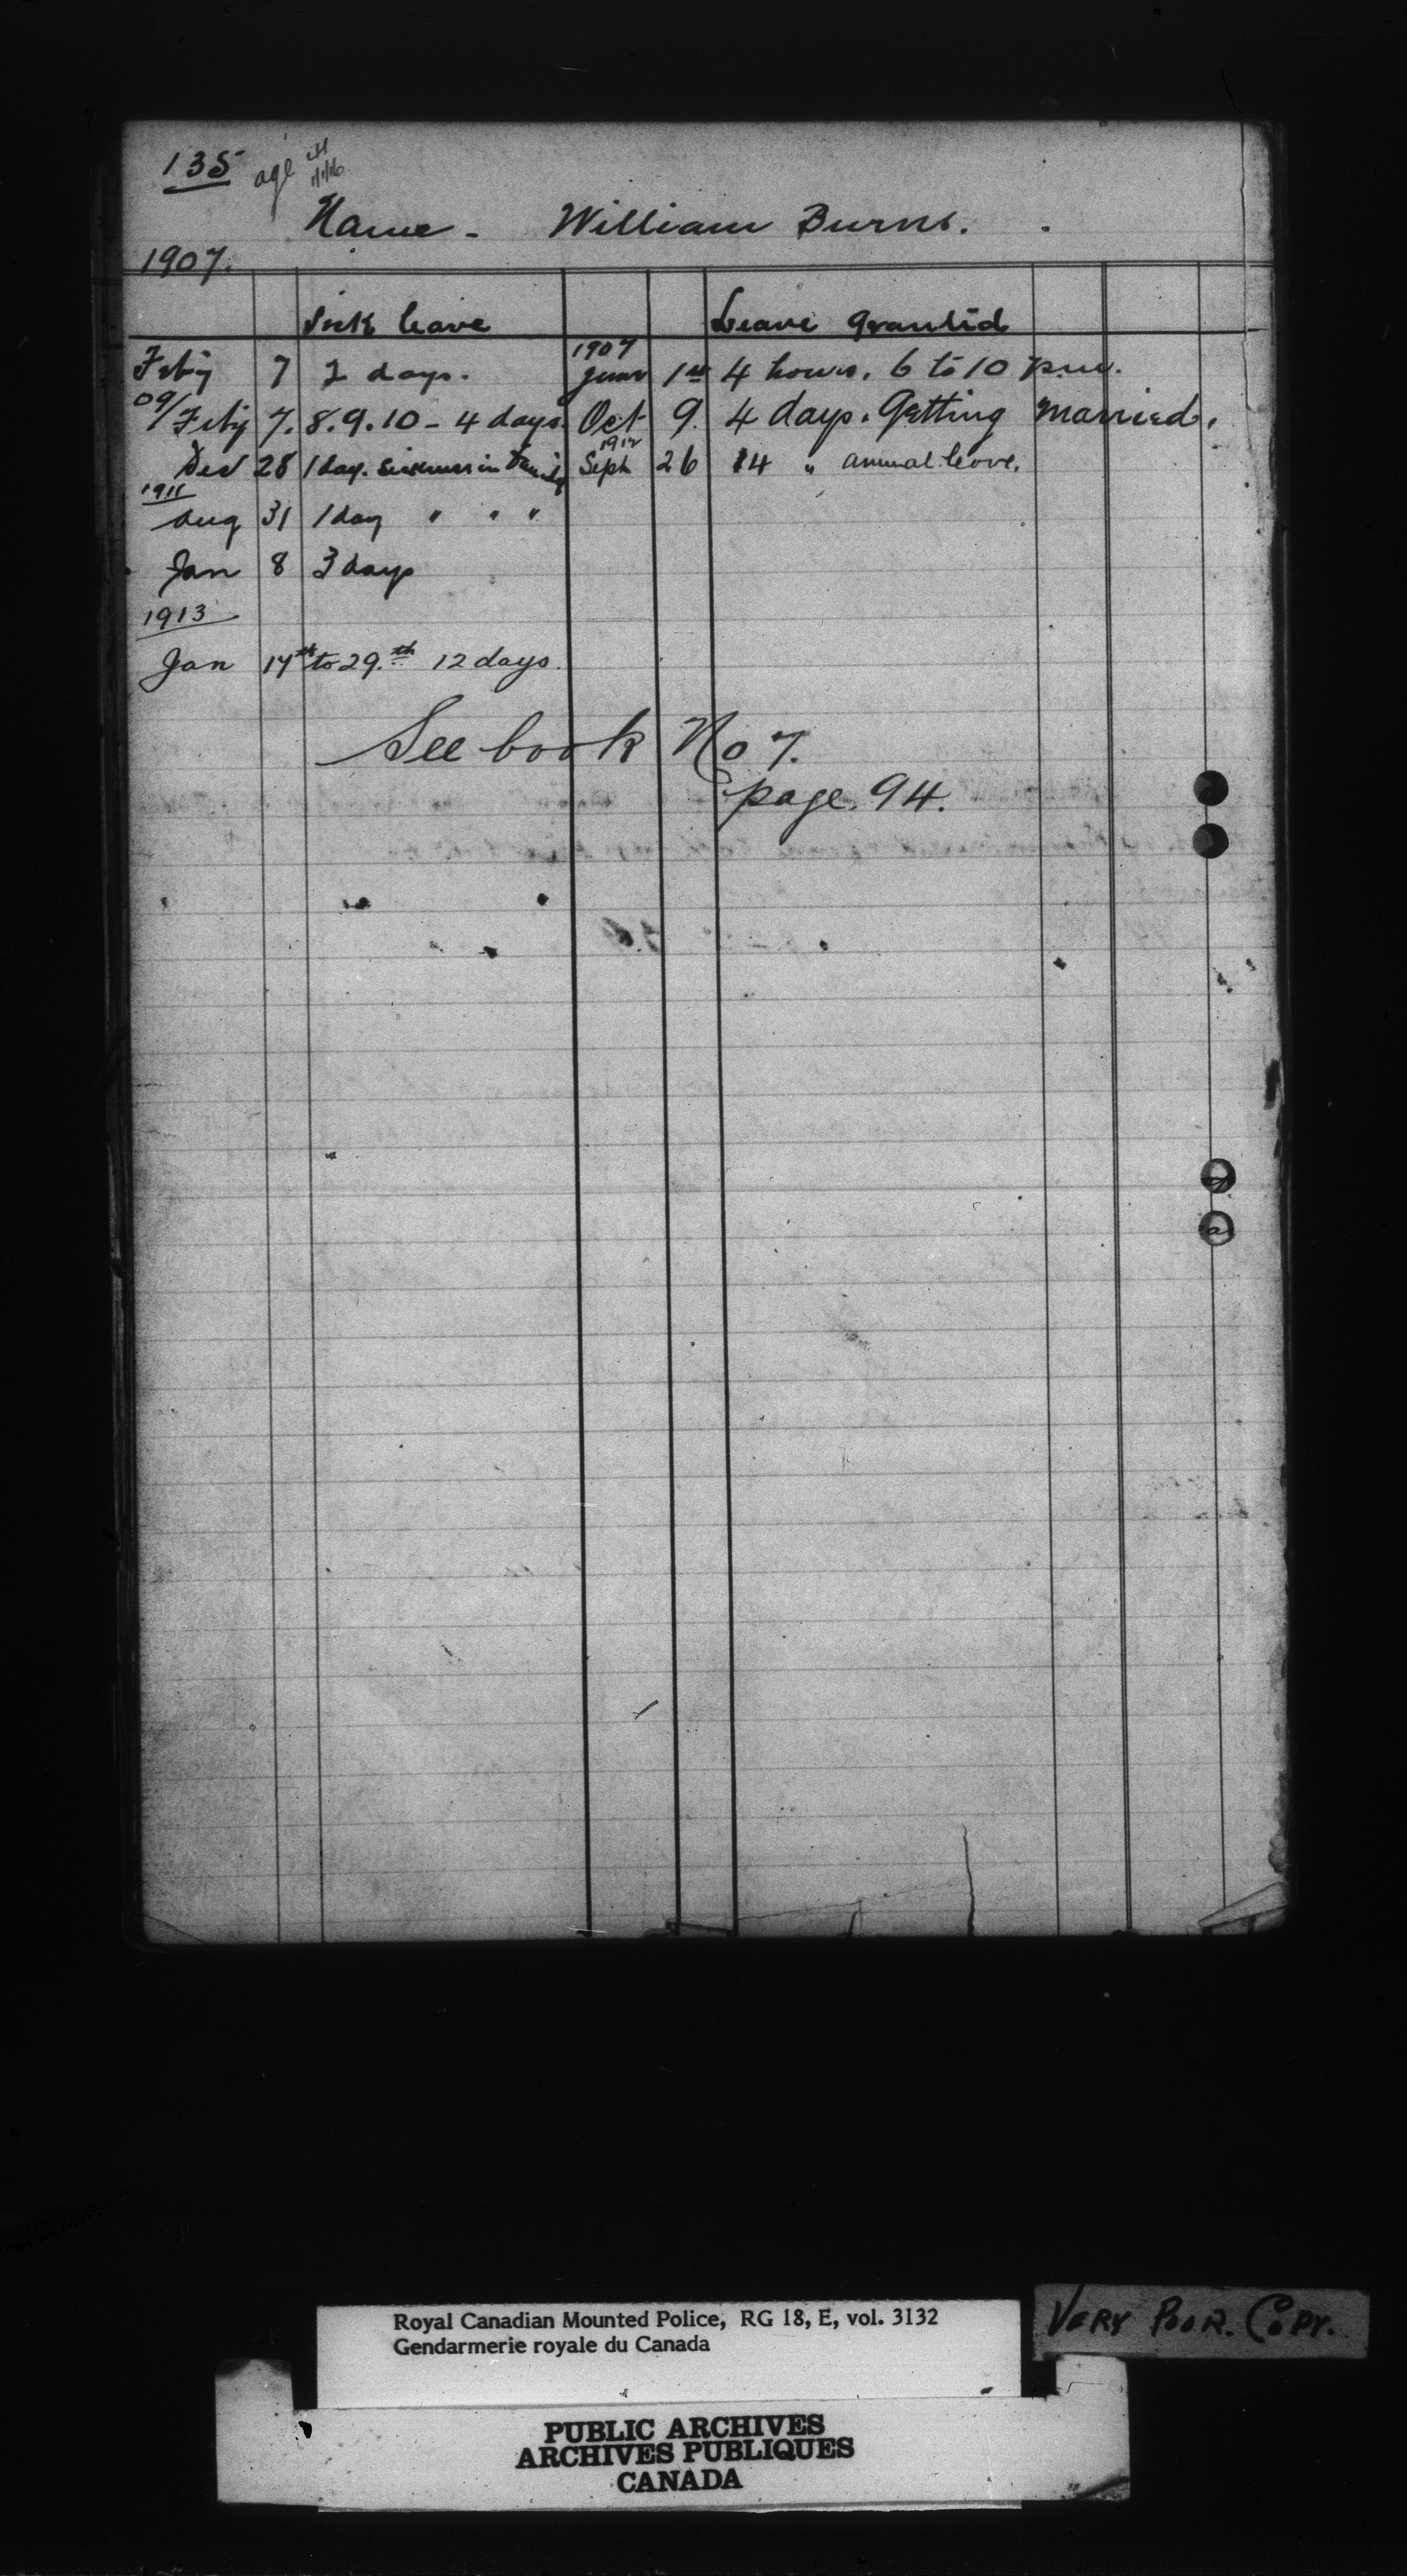 135 age
Name - William Burns.
1907.
Sick leave Leave granted
Feby 7 2 days. 1907 June 1st 4 hours. 6 to 10 p.m.
09/ Feby 7. 8. 9. 10 - 4 days. Oct 9. 4 days. Getting Married.
Dec 28 1 day. Sickness in family 1912 Sept 26 14 " annual leave.
1911
Aug 31 1 day " " "
Jan 8 3 days
1913
Jan 17th to 29.th 12 days.
See book No 7.
page. 94.
Royal Canadian Mounted Police, RG 18, E, vol. 3132
Gendarmerie royale du Canada
VERY POOR. COPY.
PUBLIC ARCHIVES
ARCHIVES PUBLIQUES
CANADA